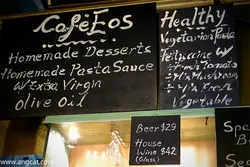 Café Eos
Homemade Desserts
Homemade Pasta Sauce
w/ Extra Virgin
olive Oil
Healthy
Vegetarian Pasta
Fettuccine w/
Fresh Tomato
w/ Mushrooms
Fresh
Vegetable
Beer $29
House
Wine $42
(Glass)
Spa
www.angcat.com